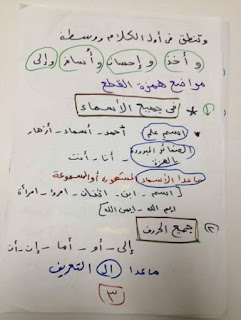 وتنطق في أول الكلام ووسطه
وأخذ وإحسان وأسامة وإلى
مواضع همزة القطع
١ * في جميع الأسماء
اسم علم أحمد - أسماء - أزهار
الضمائر المبدوءة بالهمزة أنا - أنت
ماعدا الأسماء المشهورة أو المسموعة
[اسم - ابن - اثنان - امرؤ - امرأة
ايم الله - ايمن الله]
٢ جميع الحروف
إلى - أو - أما - إن - أن
ماعدا ال التعريف
٣